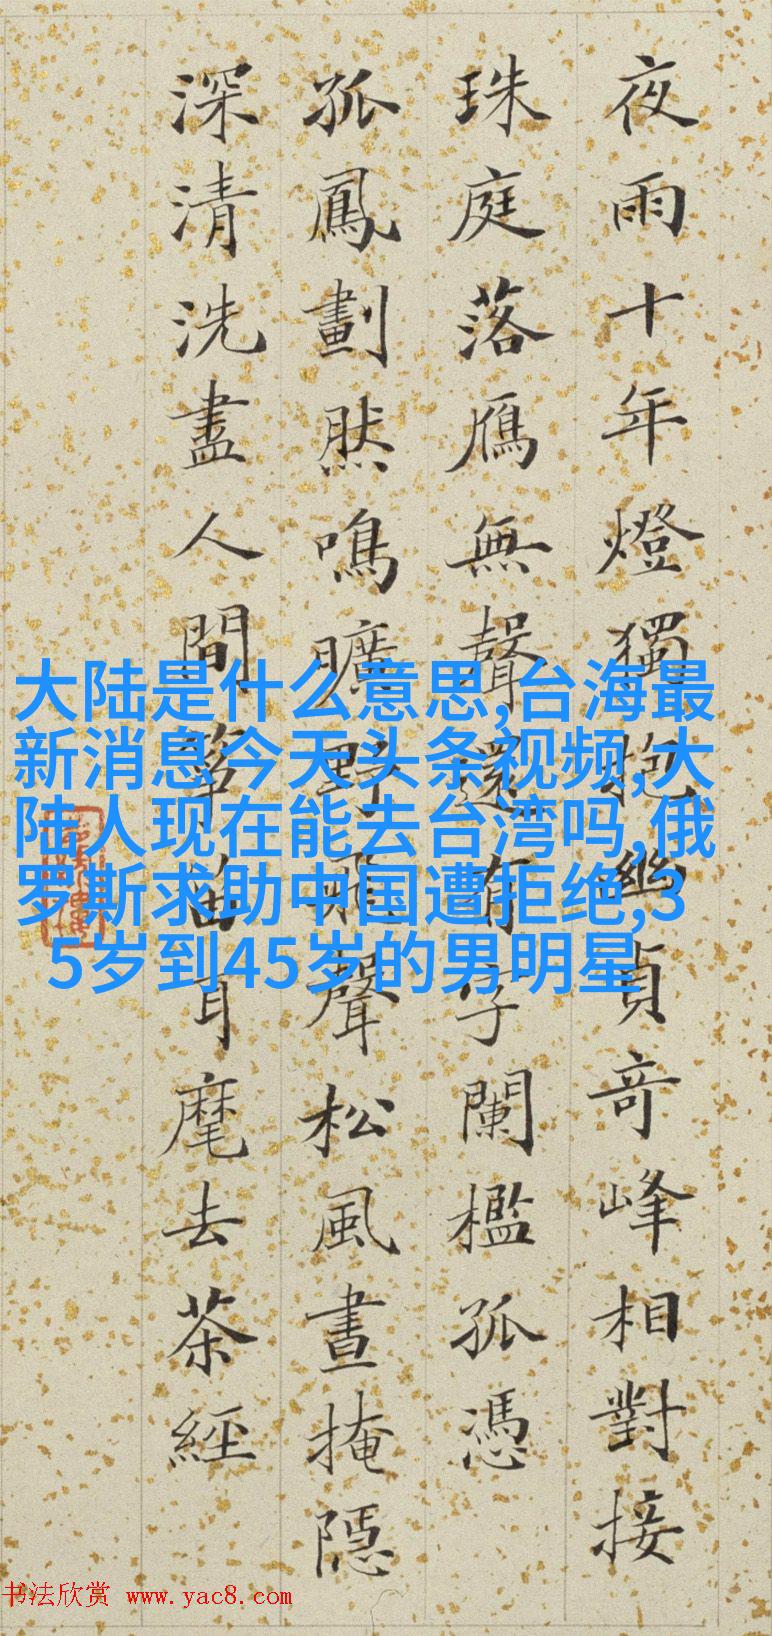 夜雨十年燈獨抱幽貞奇峰相對接
珠庭落鴈無聲還有字闌檻孤憑
孤鳳劃然鳴曠野飛聲松風晝掩隱
深清洗盡人間箏笛耳麾去茶經
大陆是什么意思,台海最
新消息今天头条视频,大
陆人现在能去台湾吗,俄
罗斯求助中国遭拒绝,3
5岁到45岁的男明星
书法欣赏 www.yac8.com